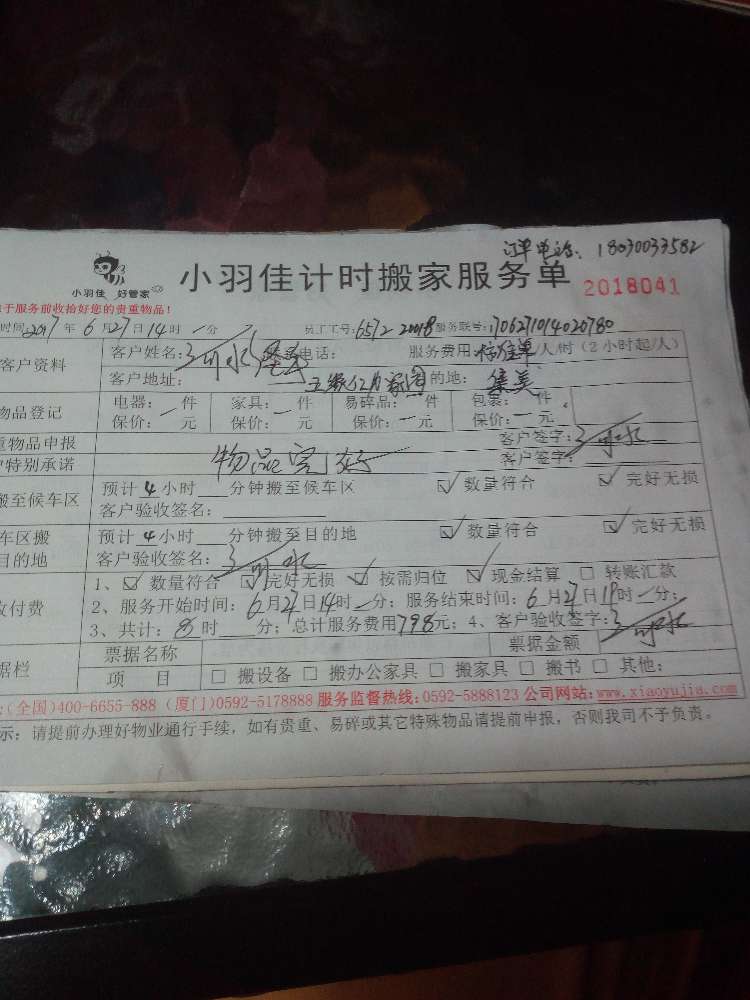 订单电话: 18030033582
小羽佳 好管家
小羽佳计时搬家服务单 2018041
于服务前收拾好您的贵重物品!
时间2017年6月27日14时一分 员工工号:6572 20018 服务联号:170627014020780
客户资料 客户姓名: 电话: 服务费用:标准单/人/时(2小时起/人)
客户地址: 五缘公寓 的地: 集美
物品登记 电器:一件 家具:一件 易碎品:一件 包裹:一件
保价:一元 保价:一元 保价:一元 保价:一元
重物品申报 客户签字:
特别承诺 物品完好 客户签字:
搬至候车区 预计4小时 分钟搬至候车区 ☑数量符合 ☑完好无损
客户验收签名:
车区搬 预计4小时 分钟搬至目的地 ☑数量符合 ☑完好无损
目的地 客户验收签名:
收付费 1、☑数量符合 ☑完好无损 ☑按需归位 ☑现金结算 □转账汇款
2、服务开始时间:6月27日14时一分;服务结束时间:6月27日18时一分;
3、共计:8时 分;总计服务费用798元;4、客户验收签字:
据栏 票据名称 票据金额
项 目 □搬设备 □搬办公家具 □搬家具 □搬书 □其他:
:(全国)400-6655-888 (厦门)0592-5178888 服务监督热线:0592-5888123 公司网站:www.xiaoyujia.com
示:请提前办理好物业通行手续,如有贵重、易碎或其它特殊物品请提前申报,否则我司不予负责。